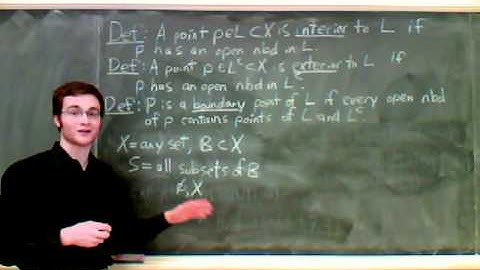 Def: A point p∈L⊂X is interior to L if
p has an open nbd in L.
Def: A point p∈Lᶜ⊂X is exterior to L if
p has an open nbd in Lᶜ.
Def: P is a boundary point of L if every open nbd
of p contains points of L and Lᶜ
X = any set, B⊂X
S = all subsets of B
X